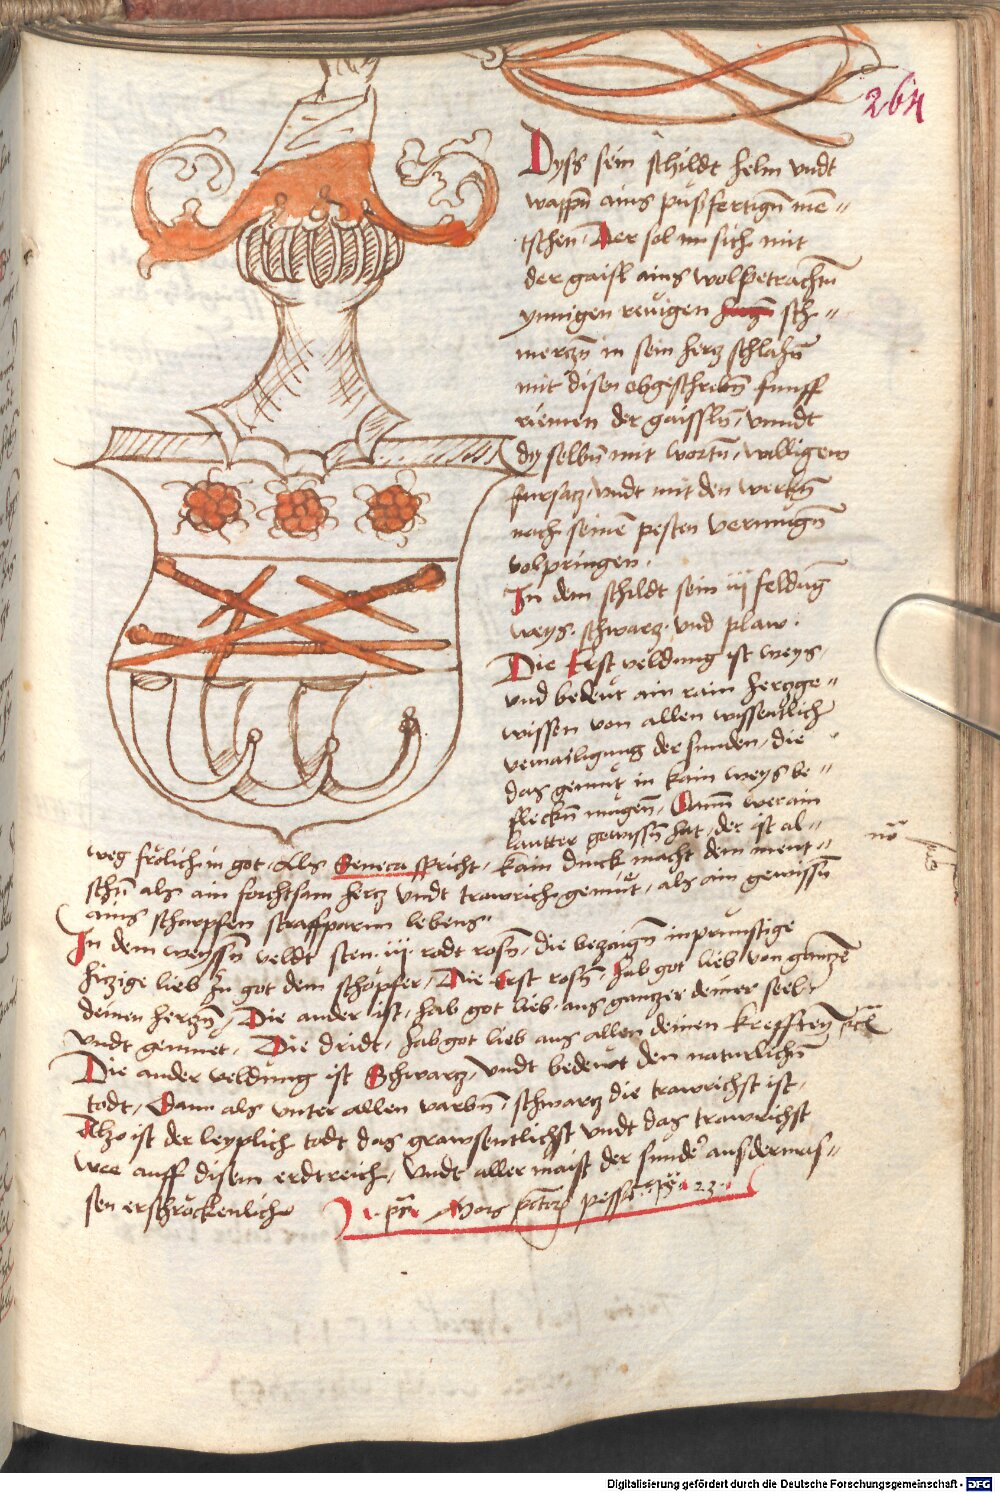 264
Dyss sein schildt helm vndt
wappn̄ ains pußfertign̄ me〃
tschen, Der sol im sich mit
der gaisl ains wolpetrachtn̄
ynnigen rewigen sch〃
merczn̄ in sein hercz schlahn̄
mit disen obgeschrebn̄ funff
riemen der gaissln̄, vnndt
dy selbn̄ mit wortn̄, willigem
fursatz, vndt mit den werckn̄
nach seinē pesten vermugn̄
volpringen.
In dem schildt sein iij feldūg
weys. schwarz. vnd plaw.
Die Erst veldung ist weys,
vnd bedeut ain rain herczge〃
wissen von allen wissentlich
vermailigung der sunden, die
das gemüt in kain weys be〃
fleckn̄ mugen̄, Dann wer ain
lautter gewissn̄ hat, der ist al〃
weg frölich in got, Als Seneca spricht, kain dinck macht dem ment〃
schn̄ als ain forchtsam hercz vndt trawrich gemüt, als ain gewissn̄
ains scharpfen straffparnn lebens.
In dem weyssn̄ veldt sten .iij. rodt rosn̄, die bezaign̄ inprünstige
hiczige lieb zu got dem schöpfer, Die Erst rosn̄ hab got lieb von ganczē
deinen herczn̄, Die ander ist, hab got lieb aus gantzer deiner seel
vndt gemuet, Die dridt, hab got lieb aus allen deinen krefften
Die ander veldung ist Schwarz, vndt bedeut den naturlichn̄
todt, Dann als vnter allen varbn̄, schwarz die trawrichst ist,
Also ist der leyplich todt das grawsenlichst vndt das trawrichst
wee auff disem erdtreich, Vndt aller maist der sunder ausdermas〃
sen erschröcklich
Mors pctor̄ pess 23
Digitalisierung gefördert durch die Deutsche Forschungsgemeinschaft - DFG